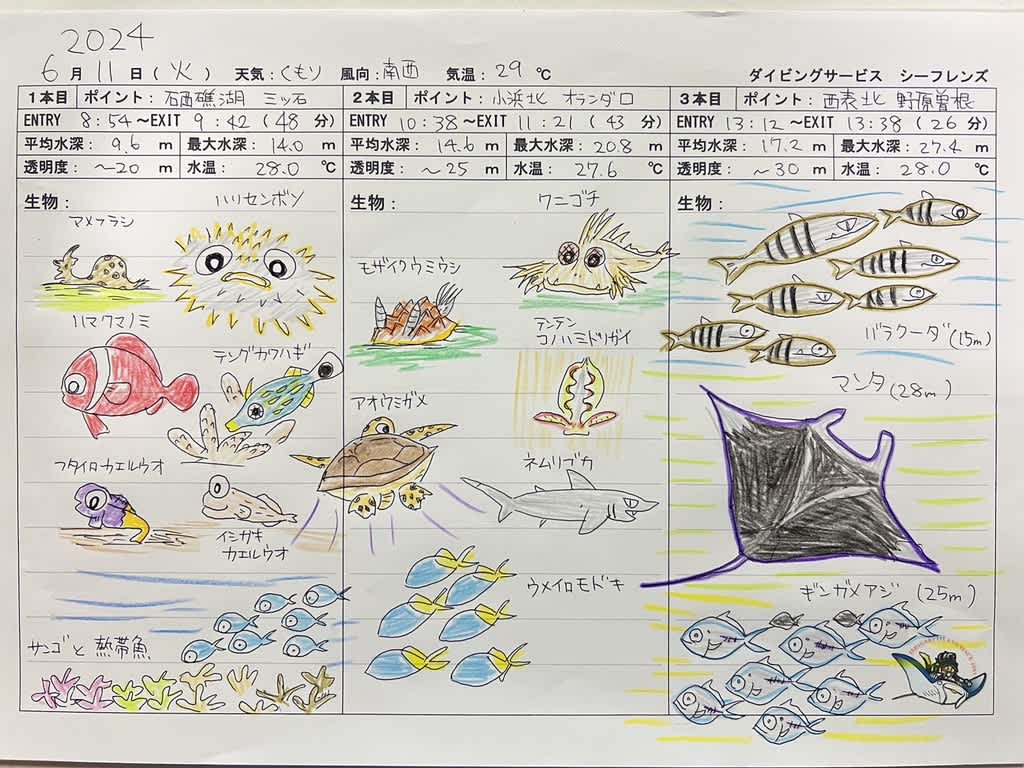 2024
6月11日(火) 天気:くもり 風向:南西 気温:29℃ ダイビングサービス シーフレンズ
1本目 ポイント:石西礁湖 三ッ石
ENTRY 8:54～EXIT 9:42(48分)
平均水深: 9.6 m 最大水深: 14.0 m
透明度: ～20 m 水温: 28.0 ℃
生物: ハリセンボン
アメフラシ
ハマクマノミ
テングカワハギ
フタイロカエルウオ
イシガキ
カエルウオ
サンゴと熱帯魚
2本目 ポイント:小浜北 オランダロ
ENTRY 10:38～EXIT 11:21(43分)
平均水深: 14.6 m 最大水深: 20.8 m
透明度: ～25 m 水温: 27.6 ℃
生物: ワニゴチ
モザイクウミウシ
テンテン
コノハミドリガイ
アオウミガメ
ネムリブカ
ウメイロモドキ
3本目 ポイント:西表北 野原曽根
ENTRY 13:12～EXIT 13:38(26分)
平均水深: 17.2 m 最大水深: 27.4 m
透明度: ～30 m 水温: 28.0 ℃
生物:
バラクーダ(15m)
マンタ(28m)
ギンガメアジ(25m)